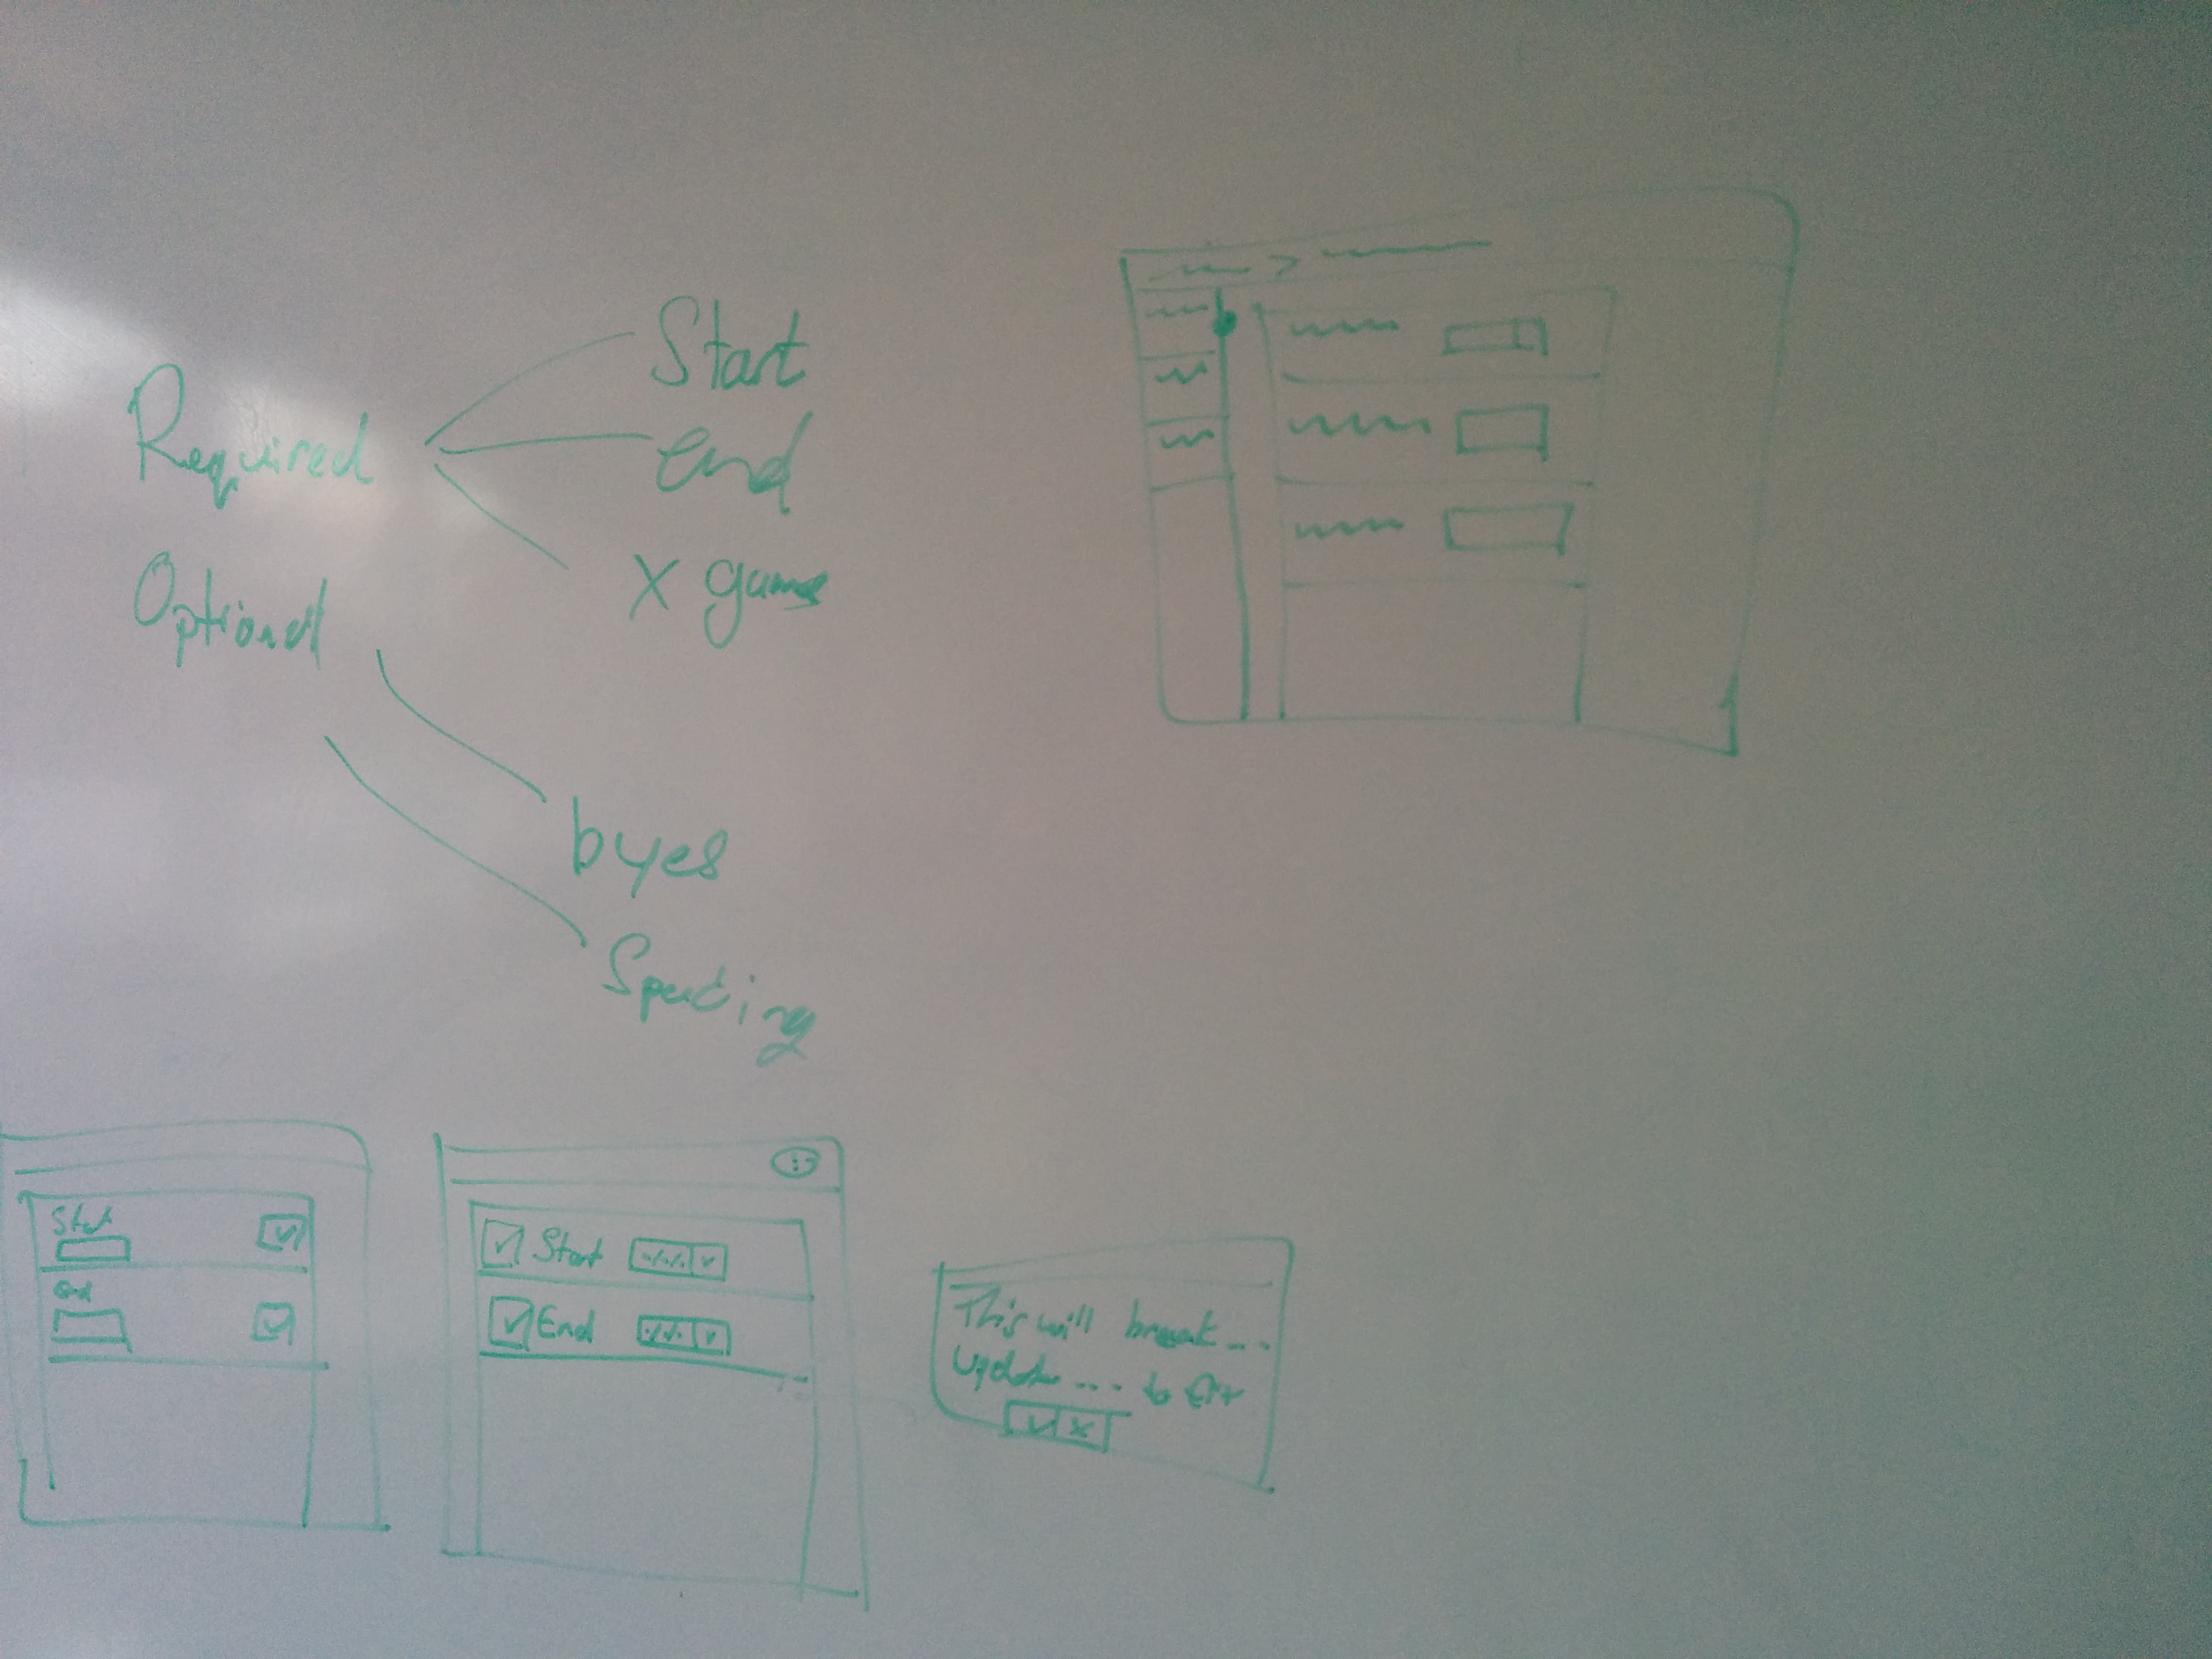 Required
Start
End
X games
Optional
byes
Spacing
Start
End
Start
End
This will break ...
Update .... to fix